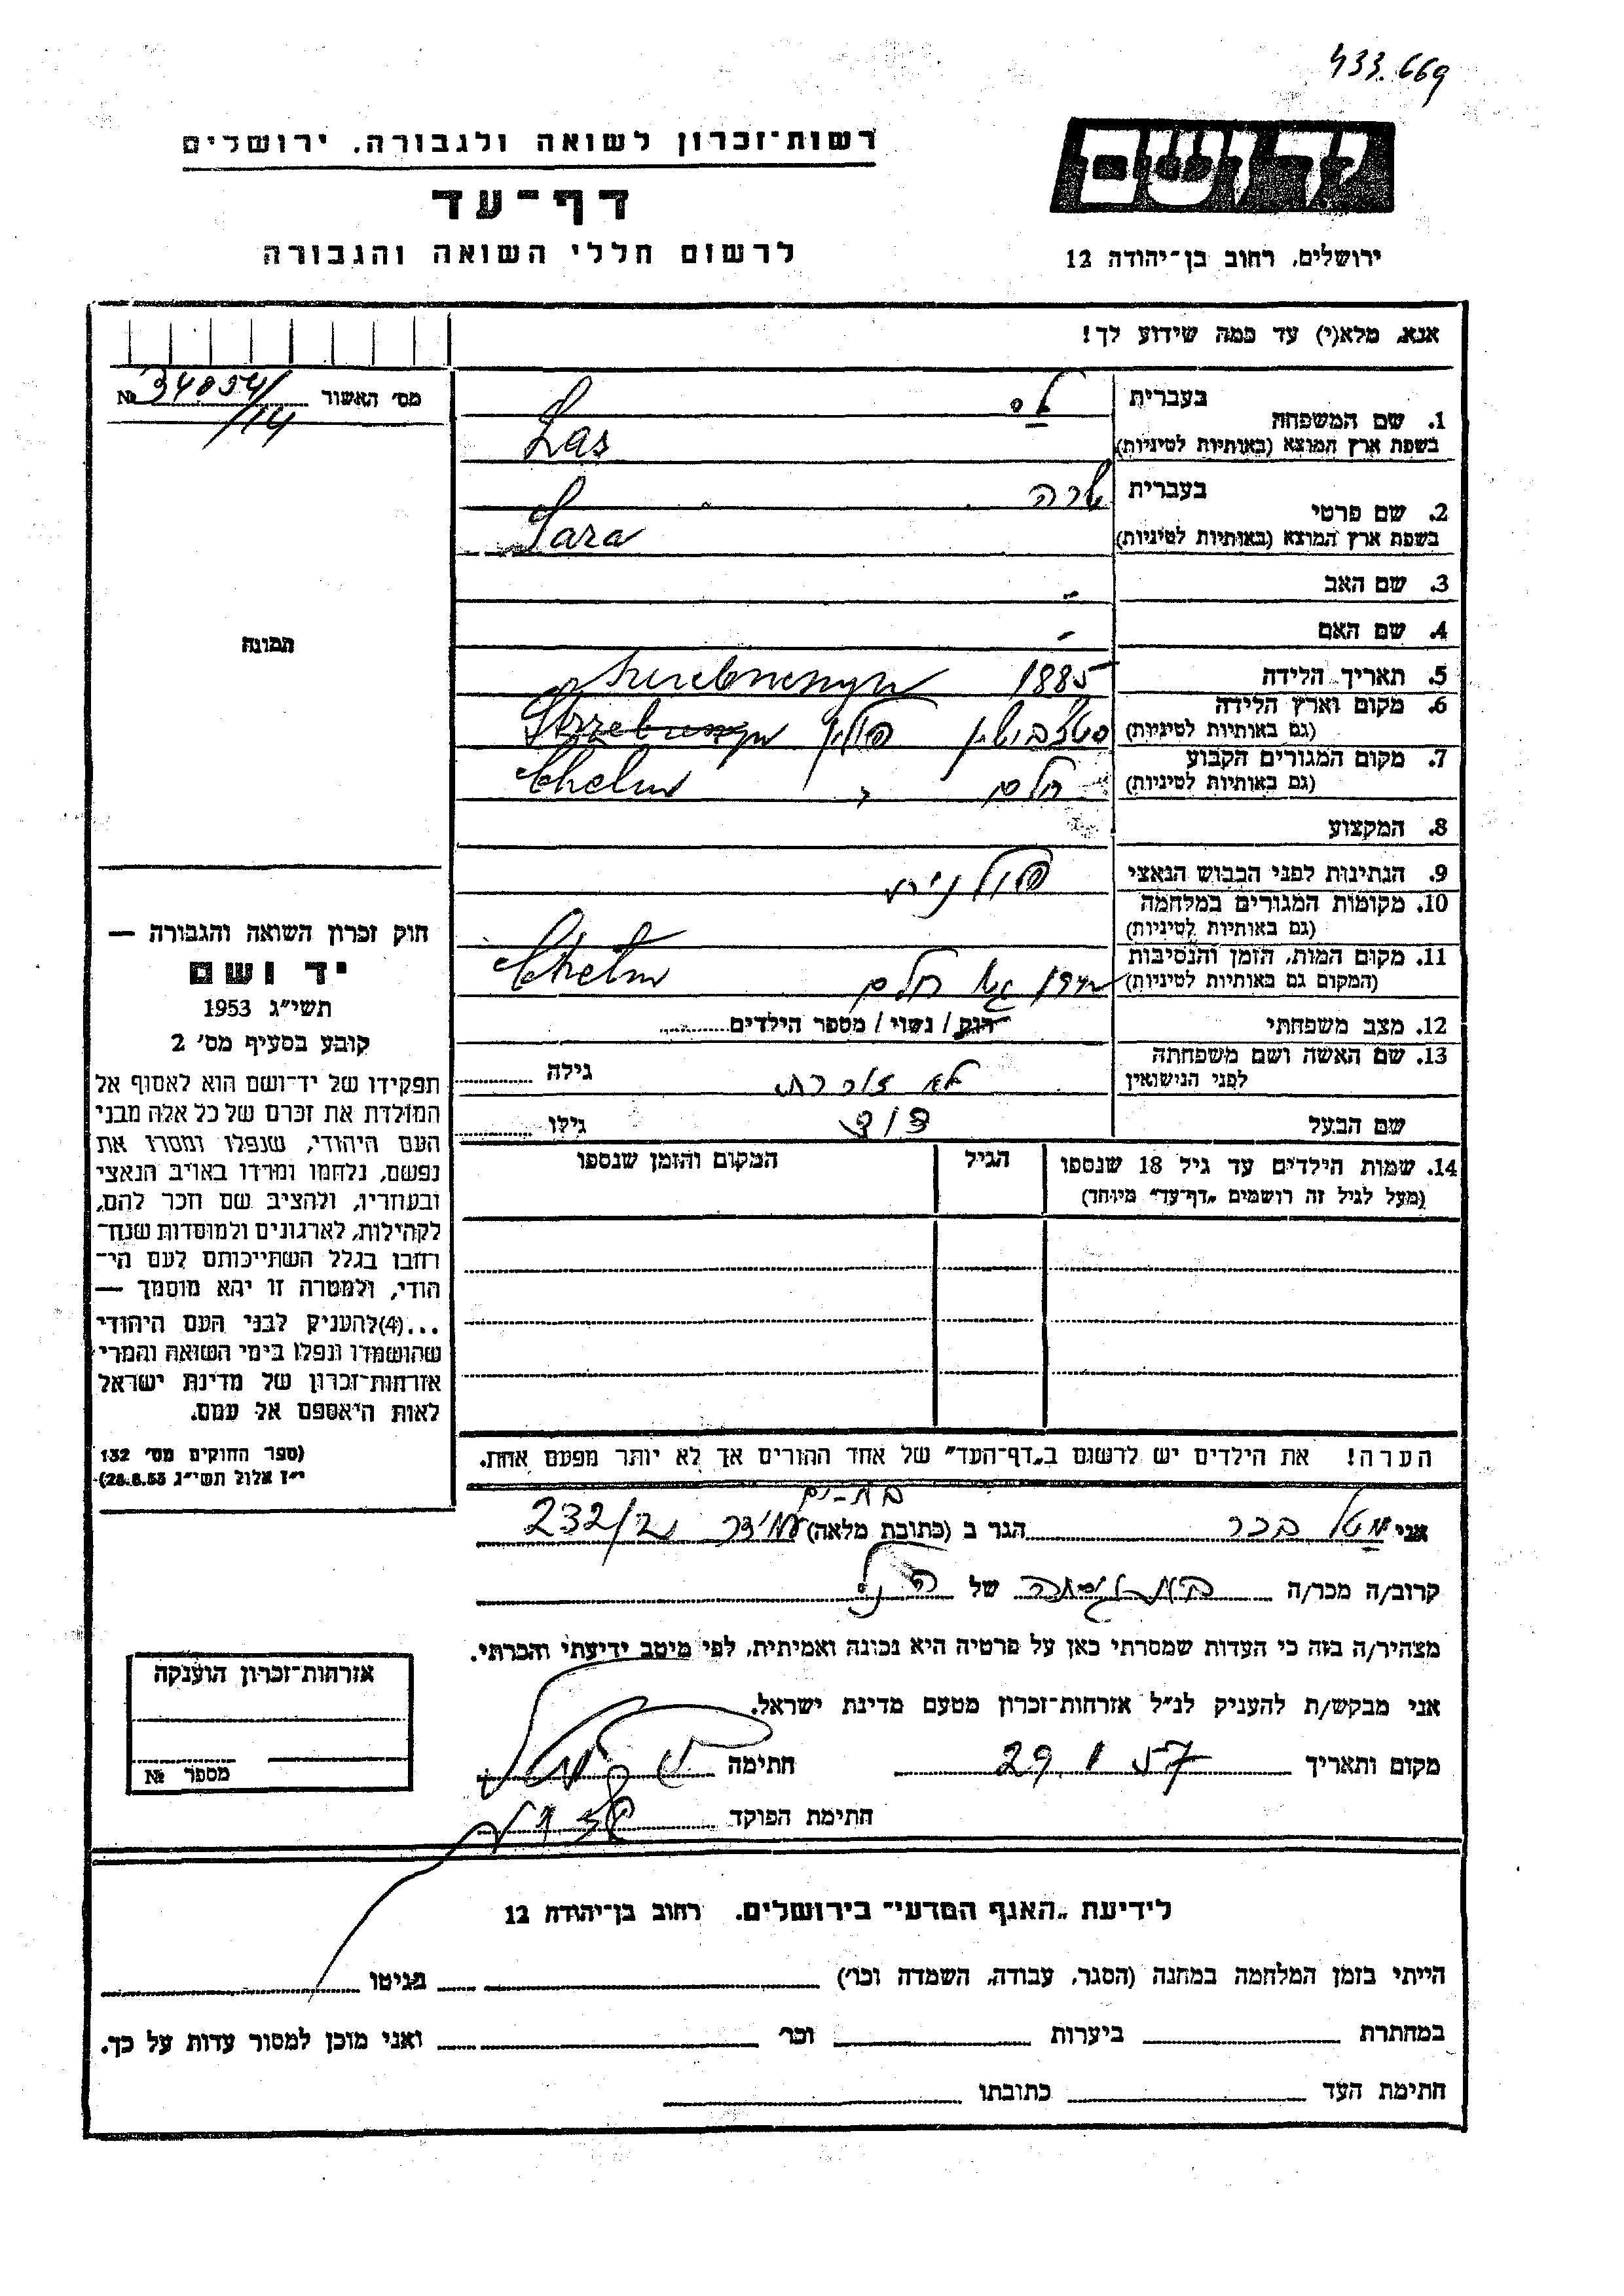 433.669
רשות־זכרון לשואה ולגבורה. ירושלים
יד ושם
דף־עד
לרשום חללי השואה והגבורה
ירושלים. רחוב בן־יהודה 12
אנא, מלא(י) עד כמה שידוע לך!
מס׳ האשור № 34854/
/14
1. שם המשפחה
בעברית
בשפת ארץ המוצא (באותיות לטיניות)
Las
2. שם פרטי
בעברית שרה
בשפת ארץ המוצא (באותיות לטיניות)
Sara
3. שם האב -
4. שם האם -
תמונה
5. תאריך הלידה 1885
6. מקום וארץ הלידה
(גם באותיות לטיניות)
פולין
7. מקום המגורים הקבוע
(גם באותיות לטיניות)
חלם Chelm
8. המקצוע
9. הנתינות לפני הכבוש הנאצי פולנית
10. מקומות המגורים במלחמה
(גם באותיות לטיניות)
11. מקום המות, הזמן והנסיבות
(המקום גם באותיות לטיניות)
חלם Chelm
12. מצב משפחתי רוק / נשוי / מספר הילדים
13. שם האשה ושם משפחתה
לפני הנישואין
לא זוכרת גילה
שם הבעל דוד גילו
14. שמות הילדים עד גיל 18 שנספו
(מעל לגיל זה רושמים „דף־עד" מיוחד)
הגיל
המקום והזמן שנספו
חוק זכרון השואה והגבורה —
יד ושם
תשי״ג 1953
קובע בסעיף מס׳ 2
תפקידו של יד־ושם הוא לאסוף אל
המולדת את זכרם של כל אלה מבני
העם היהודי, שנפלו ומסרו את
נפשם, נלחמו ומרדו באויב הנאצי
ובעוזריו, ולהציב שם וזכר להם,
לקהילות, לארגונים ולמוסדות שנח־
רחבו בגלל השתייכותם לעם הי־
הודי, ולמטרה זו יהא מוסמך —
...(4)להעניק לבני העם היהודי
שהושמדו ונפלו בימי השואה והמרי
אזרחות־זכרון של מדינת ישראל
לאות היאספם אל עמם.
(ספר החוקים מס׳ 132
י״ז אלול תשי״ג 28.8.53)
הערה! את הילדים יש לרשום ב„דף־העד" של אחד ההורים אך לא יותר מפעם אחת.
בת-ים
אני הגר ב (כתובת מלאה) 232/
קרוב/ה מכר/ה של הנ״ל
מצהיר/ה בזה כי העדות שמסרתי כאן על פרטיה היא נכונה ואמיתית, לפי מיטב ידיעתי והכרתי.
אני מבקש/ת להעניק לנ״ל אזרחות־זכרון מטעם מדינת ישראל.
מקום ותאריך 29.1.57 חתימה
חתימת הפוקד
אזרחות־זכרון הוענקה
מספר №
לידיעת „האגף המדעי" בירושלים. רחוב בן־יהודה 12
הייתי בזמן המלחמה במחנה (הסגר, עבודה, השמדה וכו׳) בגיטו
במחתרת ביערות וכו׳ ואני מוכן למסור עדות על כך.
חתימת העד כתובתו